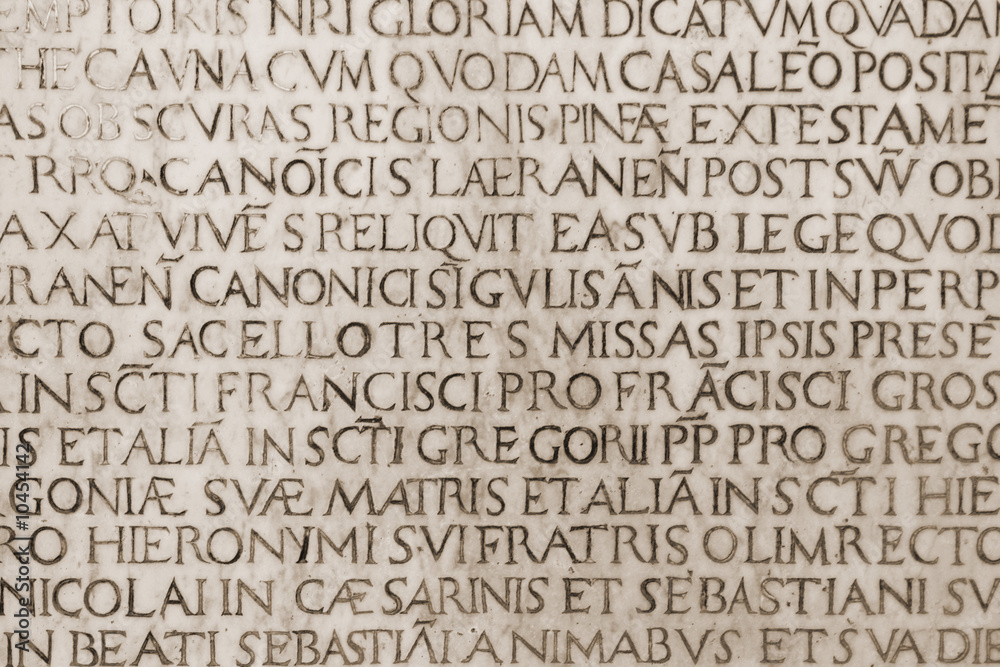 EMPTORIS NRI GLORIAM DICATVM QVADA
HEC AVNA CVM QVODAM CASALEÕ POSITA
AS OBSCVRAS REGIONIS PINEÆ EX TESTAME
RRQ CANÕICIS LAERANEÑ POST SVṼ OBI
AXAT VIVẼS RELIQVIT EA SVB LEGE QVOD
ERANEÑ CANONICI SĨGVLIS ÃNIS ET IN PERP
CTO SACELLO TRES MISSAS IPSIS PRESẼ
IN SC̃TI FRANCISCI PRO FRÃCISCI GROS
IS ET ALIÃ IN SC̃TI GREGORII PP̃ PRO GREGO
LONIÆ SVÆ MATRIS ET ALIÃ IN SC̃TI HIE
RO HIERONYMI SVI FRATRIS OLIM RECTO
NICOLAI IN CÆSARINIS ET SEBASTIANI SV
IN BEATI SEBASTIÃI ANIMABVS ET SVA DIE
Adobe Stock | #104541425